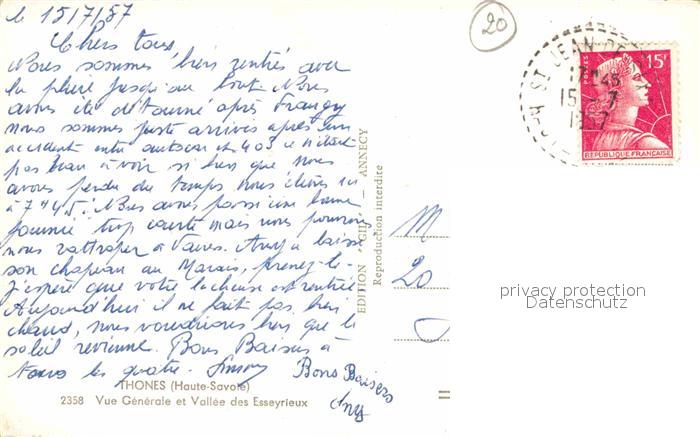 le 15/7/57
20
Chers tous,
Nous sommes bien rentrés avec
la pluie jusqu'au bout. Nous
avons été détourné après Frangy
nous sommes juste arrivés après un
accident entre autocar et 403 ce n'était
pas beau à voir si bien que nous
avons perdu du temps nous étions ici
à 7H45. Nous avons passé une bonne
journée trop courte mais nous pourrons
nous rattraper à Vaives. Any a laissé
son chapeau au Marais, prenez-le.
J'espère que votre est rentrée
Aujourd'hui il ne fait pas bien
chaud, nous voudrions bien que le
soleil revienne. Bons Baisers à
tous les quatre. Simon
Bons Baisers
Any
THONES (Haute-Savoie)
2358 Vue Générale et Vallée des Esseyrieux
EDITION GIL ANNECY
Reproduction interdite
M
20
ST JEAN DE
17H45
15 - 7
1957
POSTES
15F
REPUBLIQUE FRANÇAISE
privacy protection
Datenschutz